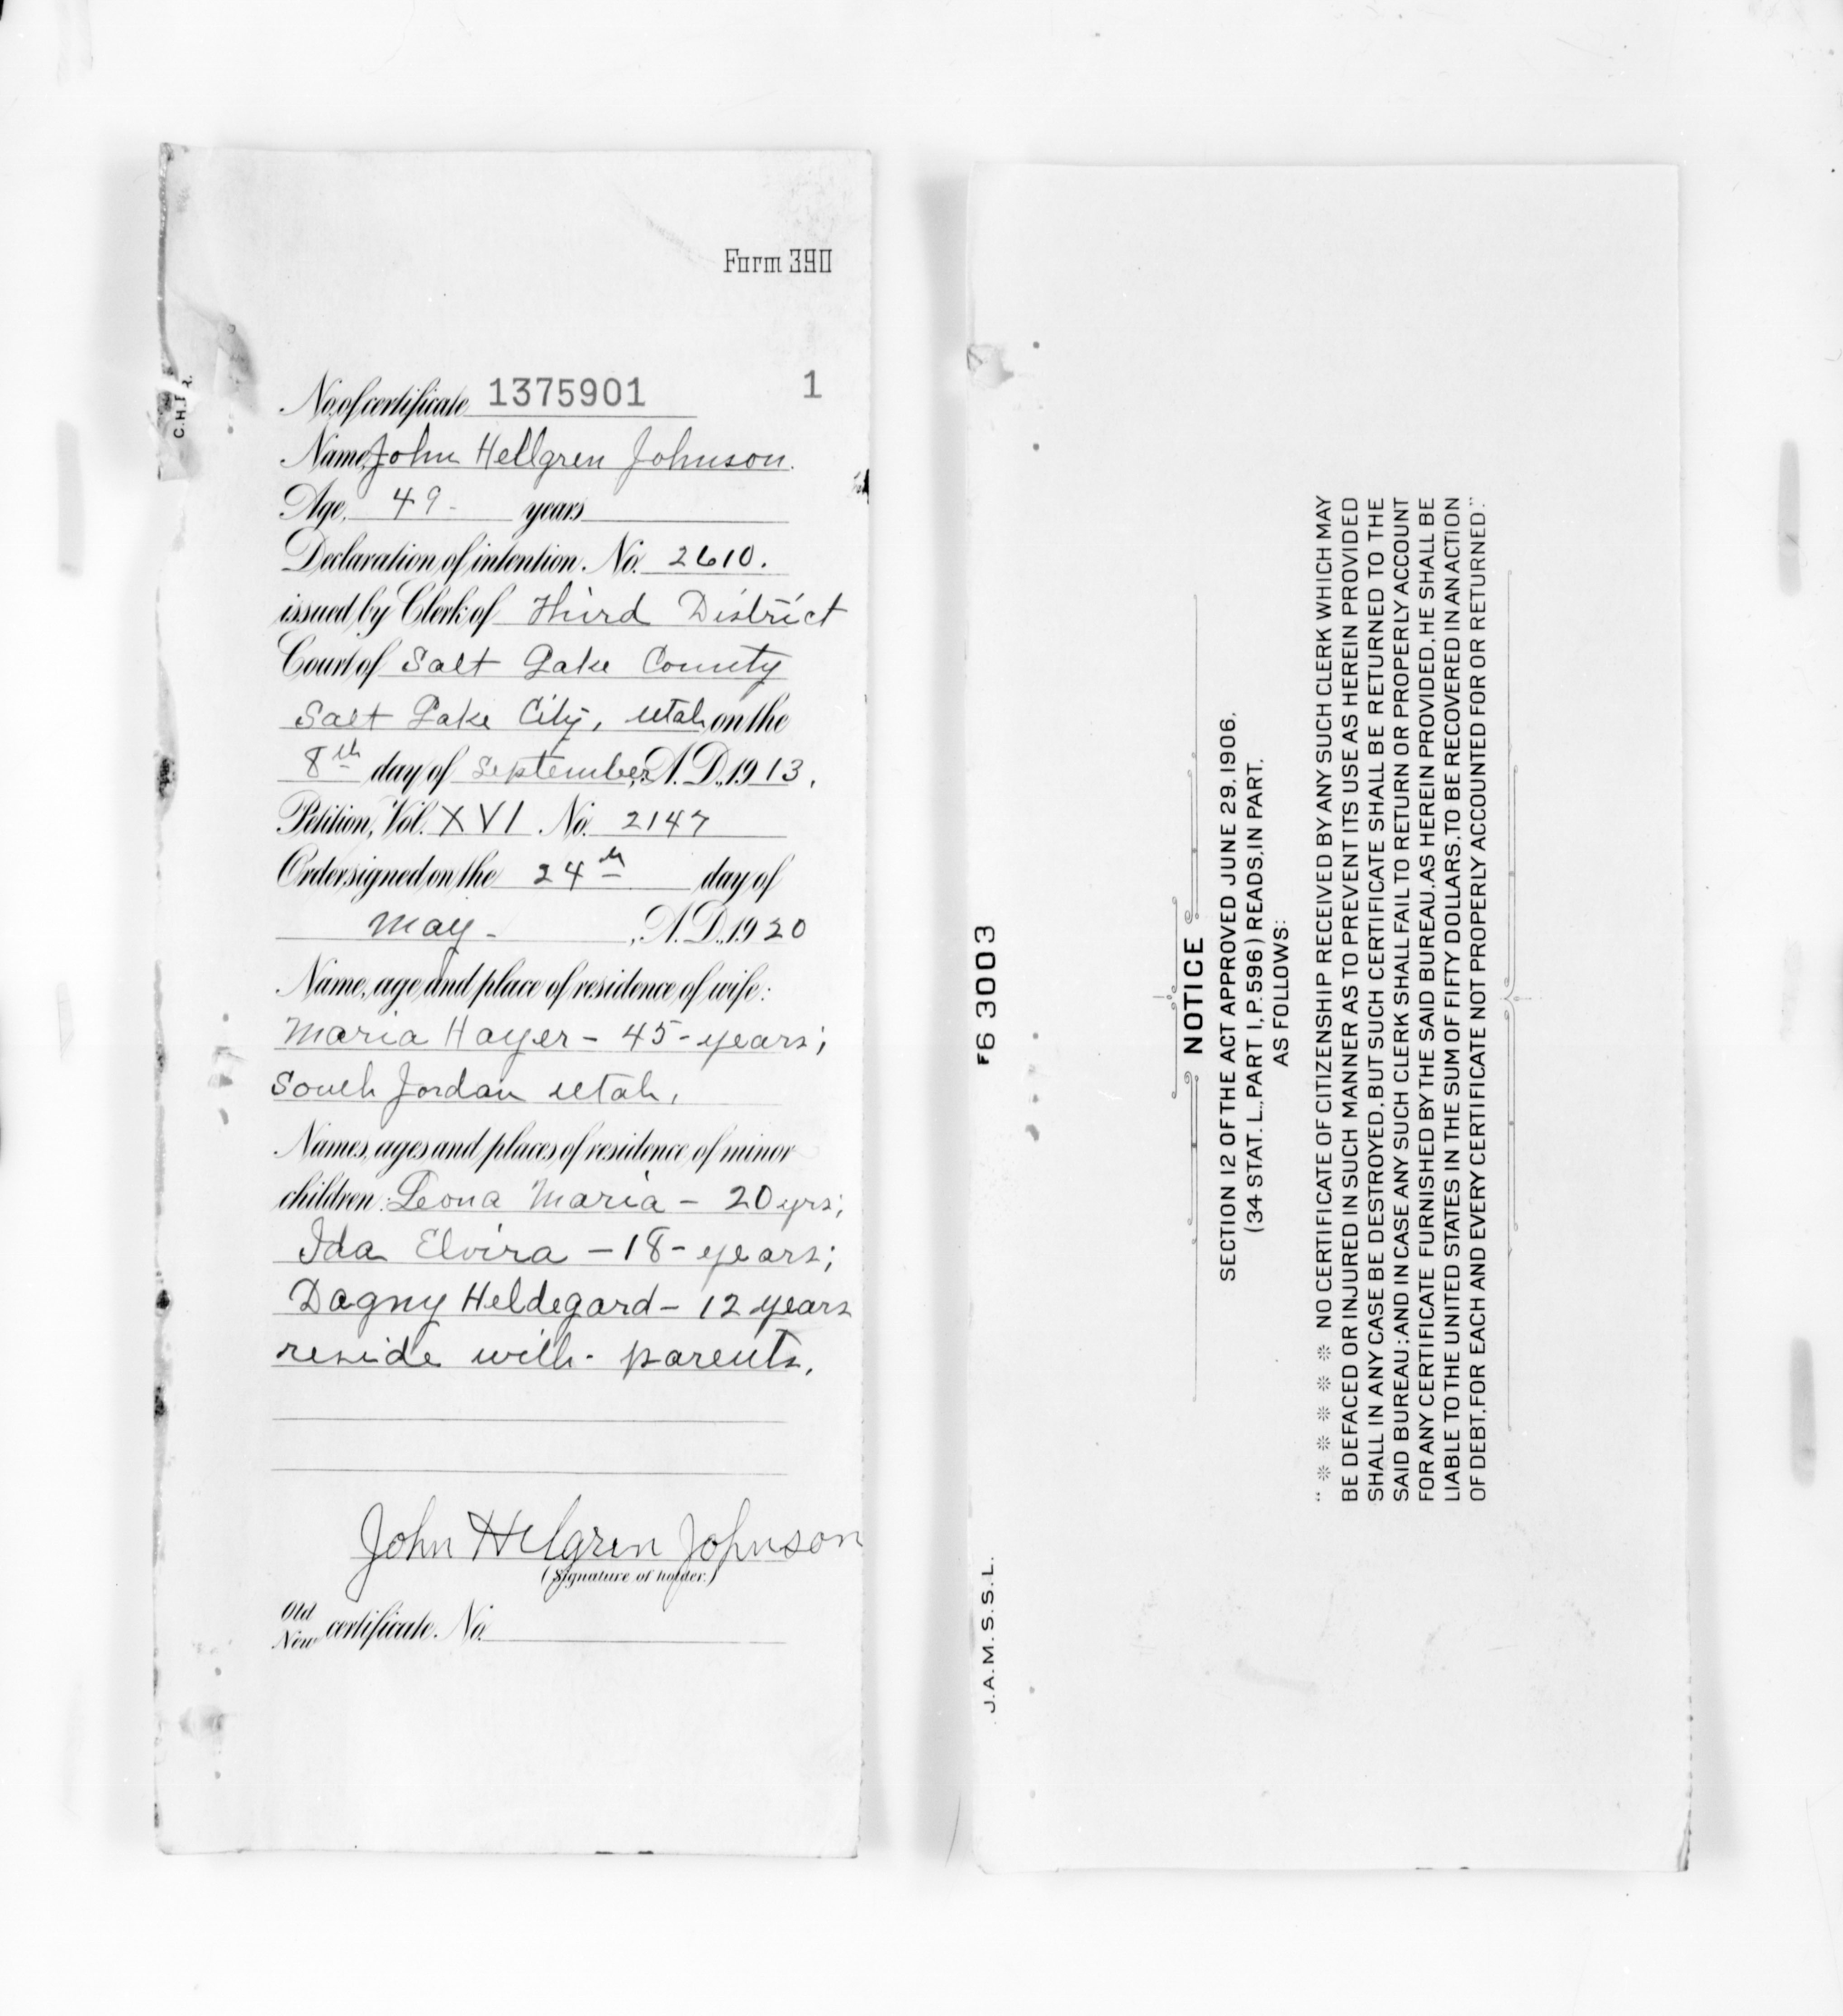 Form 390
C.H.I.R.
No. of certificate 1375901 1
Name, John Hellgren Johnson.
Age, 49 - years
Declaration of intention, No. 2610.
issued by Clerk of Third District
Court of Salt Lake County
Salt Lake City, Utah on the
8th day of September, A.D., 1913.
Petition, Vol. XVI No. 2147
Order signed on the 24th day of
May - , A.D., 1920
Name, age and place of residence of wife:
Maria Hayer - 45 - years;
South Jordan Utah.
Names, ages and places of residence of minor
children: Leona Maria - 20 yrs;
Ida Elvira - 18 - years;
Dagny Heldegard - 12 years
reside with - parents.
John Helgren Johnson
(Signature of holder.)
Old
New certificate. No.
F6 3003
J.A.M.S.S.L.
NOTICE
SECTION 12 OF THE ACT APPROVED JUNE 29, 1906,
(34 STAT. L., PART I, P. 596) READS, IN PART,
AS FOLLOWS:
" * * * * * NO CERTIFICATE OF CITIZENSHIP RECEIVED BY ANY SUCH CLERK WHICH MAY
BE DEFACED OR INJURED IN SUCH MANNER AS TO PREVENT ITS USE AS HEREIN PROVIDED
SHALL IN ANY CASE BE DESTROYED, BUT SUCH CERTIFICATE SHALL BE RETURNED TO THE
SAID BUREAU; AND IN CASE ANY SUCH CLERK SHALL FAIL TO RETURN OR PROPERLY ACCOUNT
FOR ANY CERTIFICATE FURNISHED BY THE SAID BUREAU, AS HEREIN PROVIDED, HE SHALL BE
LIABLE TO THE UNITED STATES IN THE SUM OF FIFTY DOLLARS, TO BE RECOVERED IN AN ACTION
OF DEBT, FOR EACH AND EVERY CERTIFICATE NOT PROPERLY ACCOUNTED FOR OR RETURNED."